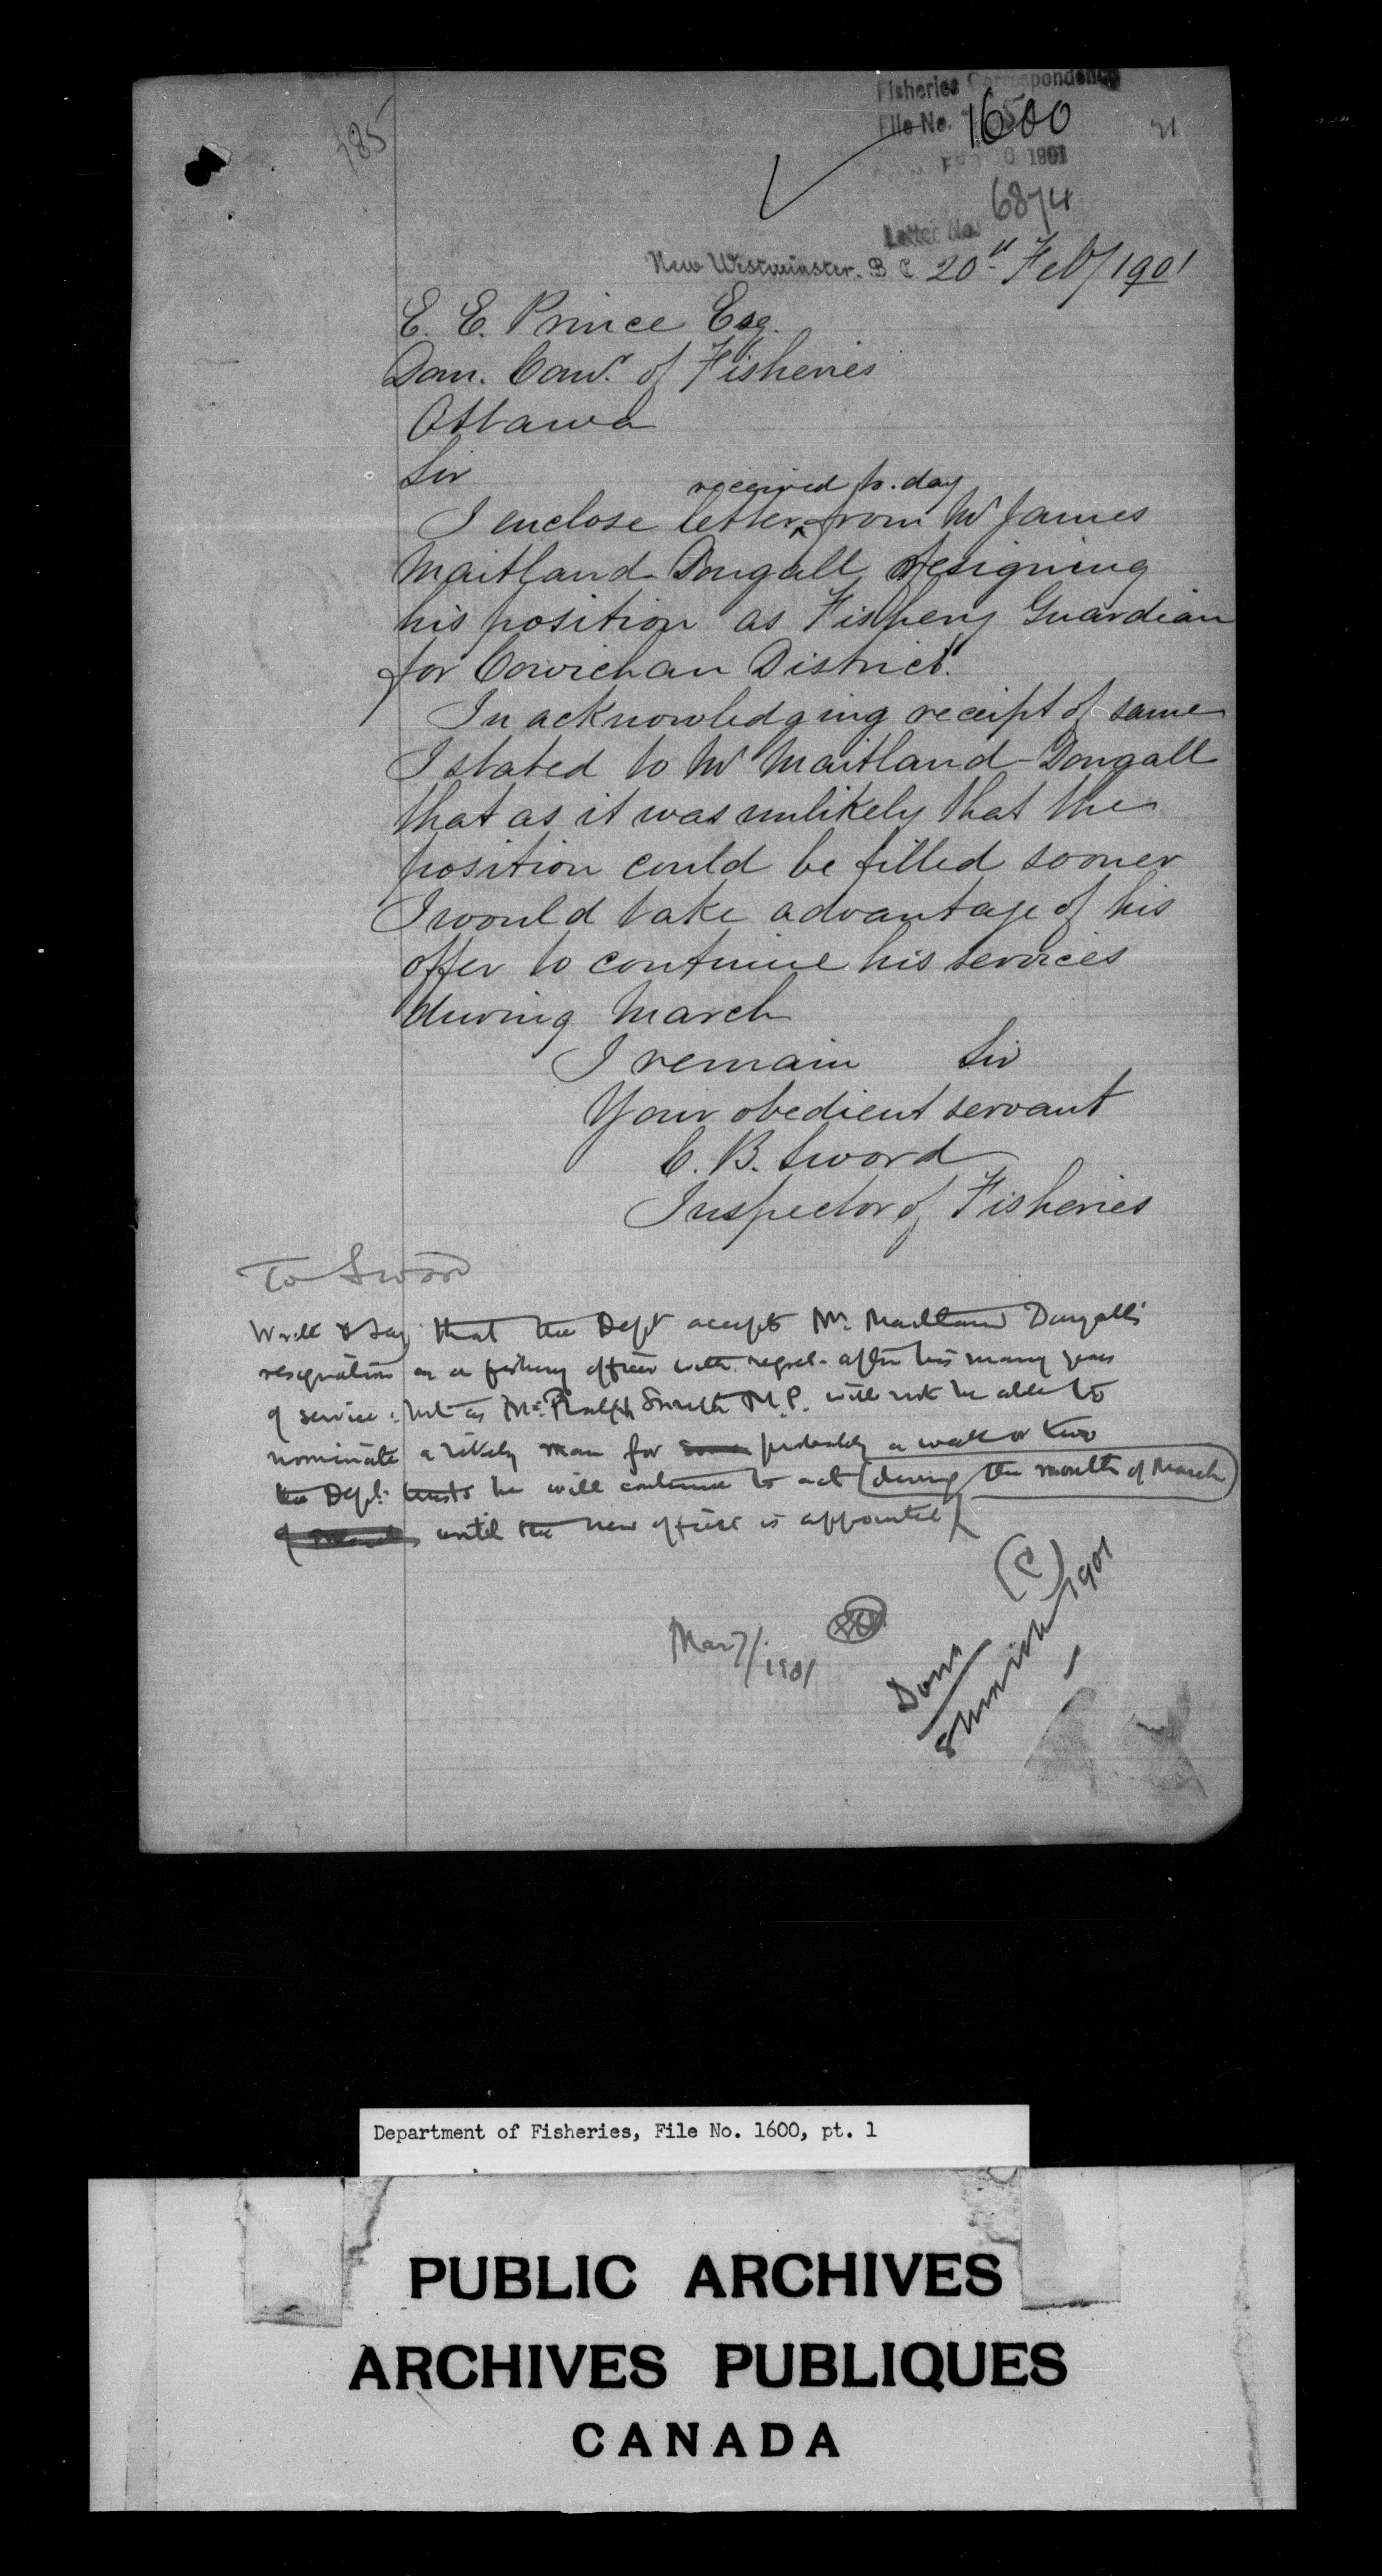 185
Fisheries Correspondence
File No. 1600
21
FEB 20 1901
6874
Letter No.
New Westminster. B C 20th Feb/1901
E. E. Prince Esq.
Dom. Comr. of Fisheries
Ottawa
Sir
received to.day
I enclose letter ^ from Mr James
Maitland Dougall resigning
his position as Fishery Guardian
for Cowichan District.
In acknowledging receipt of same
I stated to Mr Maitland-Dougall
that as it was unlikely that the
position could be filled sooner
I would take advantage of his
offer to continue his services
during March
I remain Sir
Your obedient servant
C. B. Sword
Inspector of Fisheries
To Sword
Write & say that the Dept accepts Mr. Maitland Dougall's
resignation as a fishery officer with regret after his many years
of service, but as Mr. Ralph Smith M.P. will not be able to
nominate a likely man for some probably a week or two
the Dept. trusts he will continue to act (during the month of March)
of March until the new officer is appointed
(C)
Mar 7/1901
Done
8 March 1901
Department of Fisheries, File No. 1600, pt. 1
PUBLIC ARCHIVES
ARCHIVES PUBLIQUES
CANADA